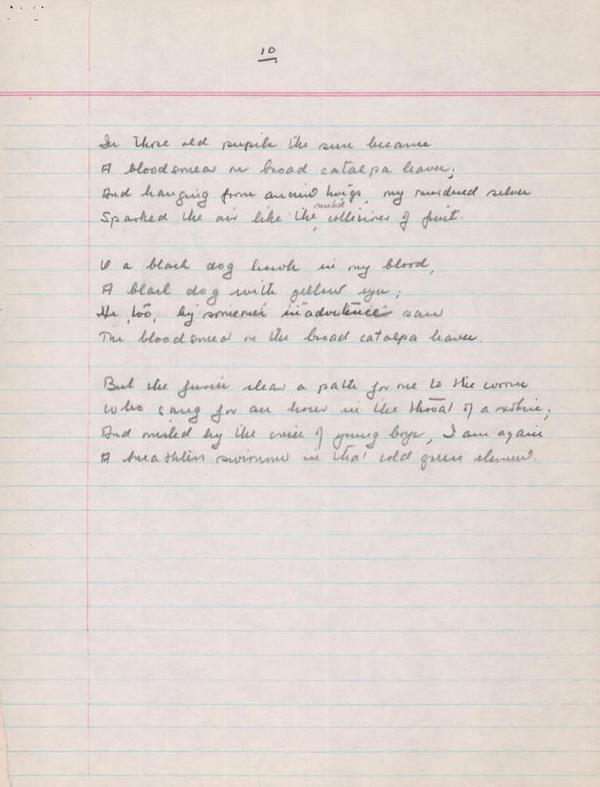 10
In those old pupils the sun became
A bloodsmear on broad catalpa leaves;
And hanging from ancient twigs, my murdered selves
muted
Sparked the air like the collisions of fruit.
O a black dog howls in my blood,
A black dog with yellow eyes;
He, too, by someone's inadvertence saw
The bloodsmear on the broad catalpa leaves.
But the furies clear a path for me to the worm
Who sang for an hour in the throat of a robin;
And misled by the cries of young boys, I am again
A breathless swimmer in that cold green element.